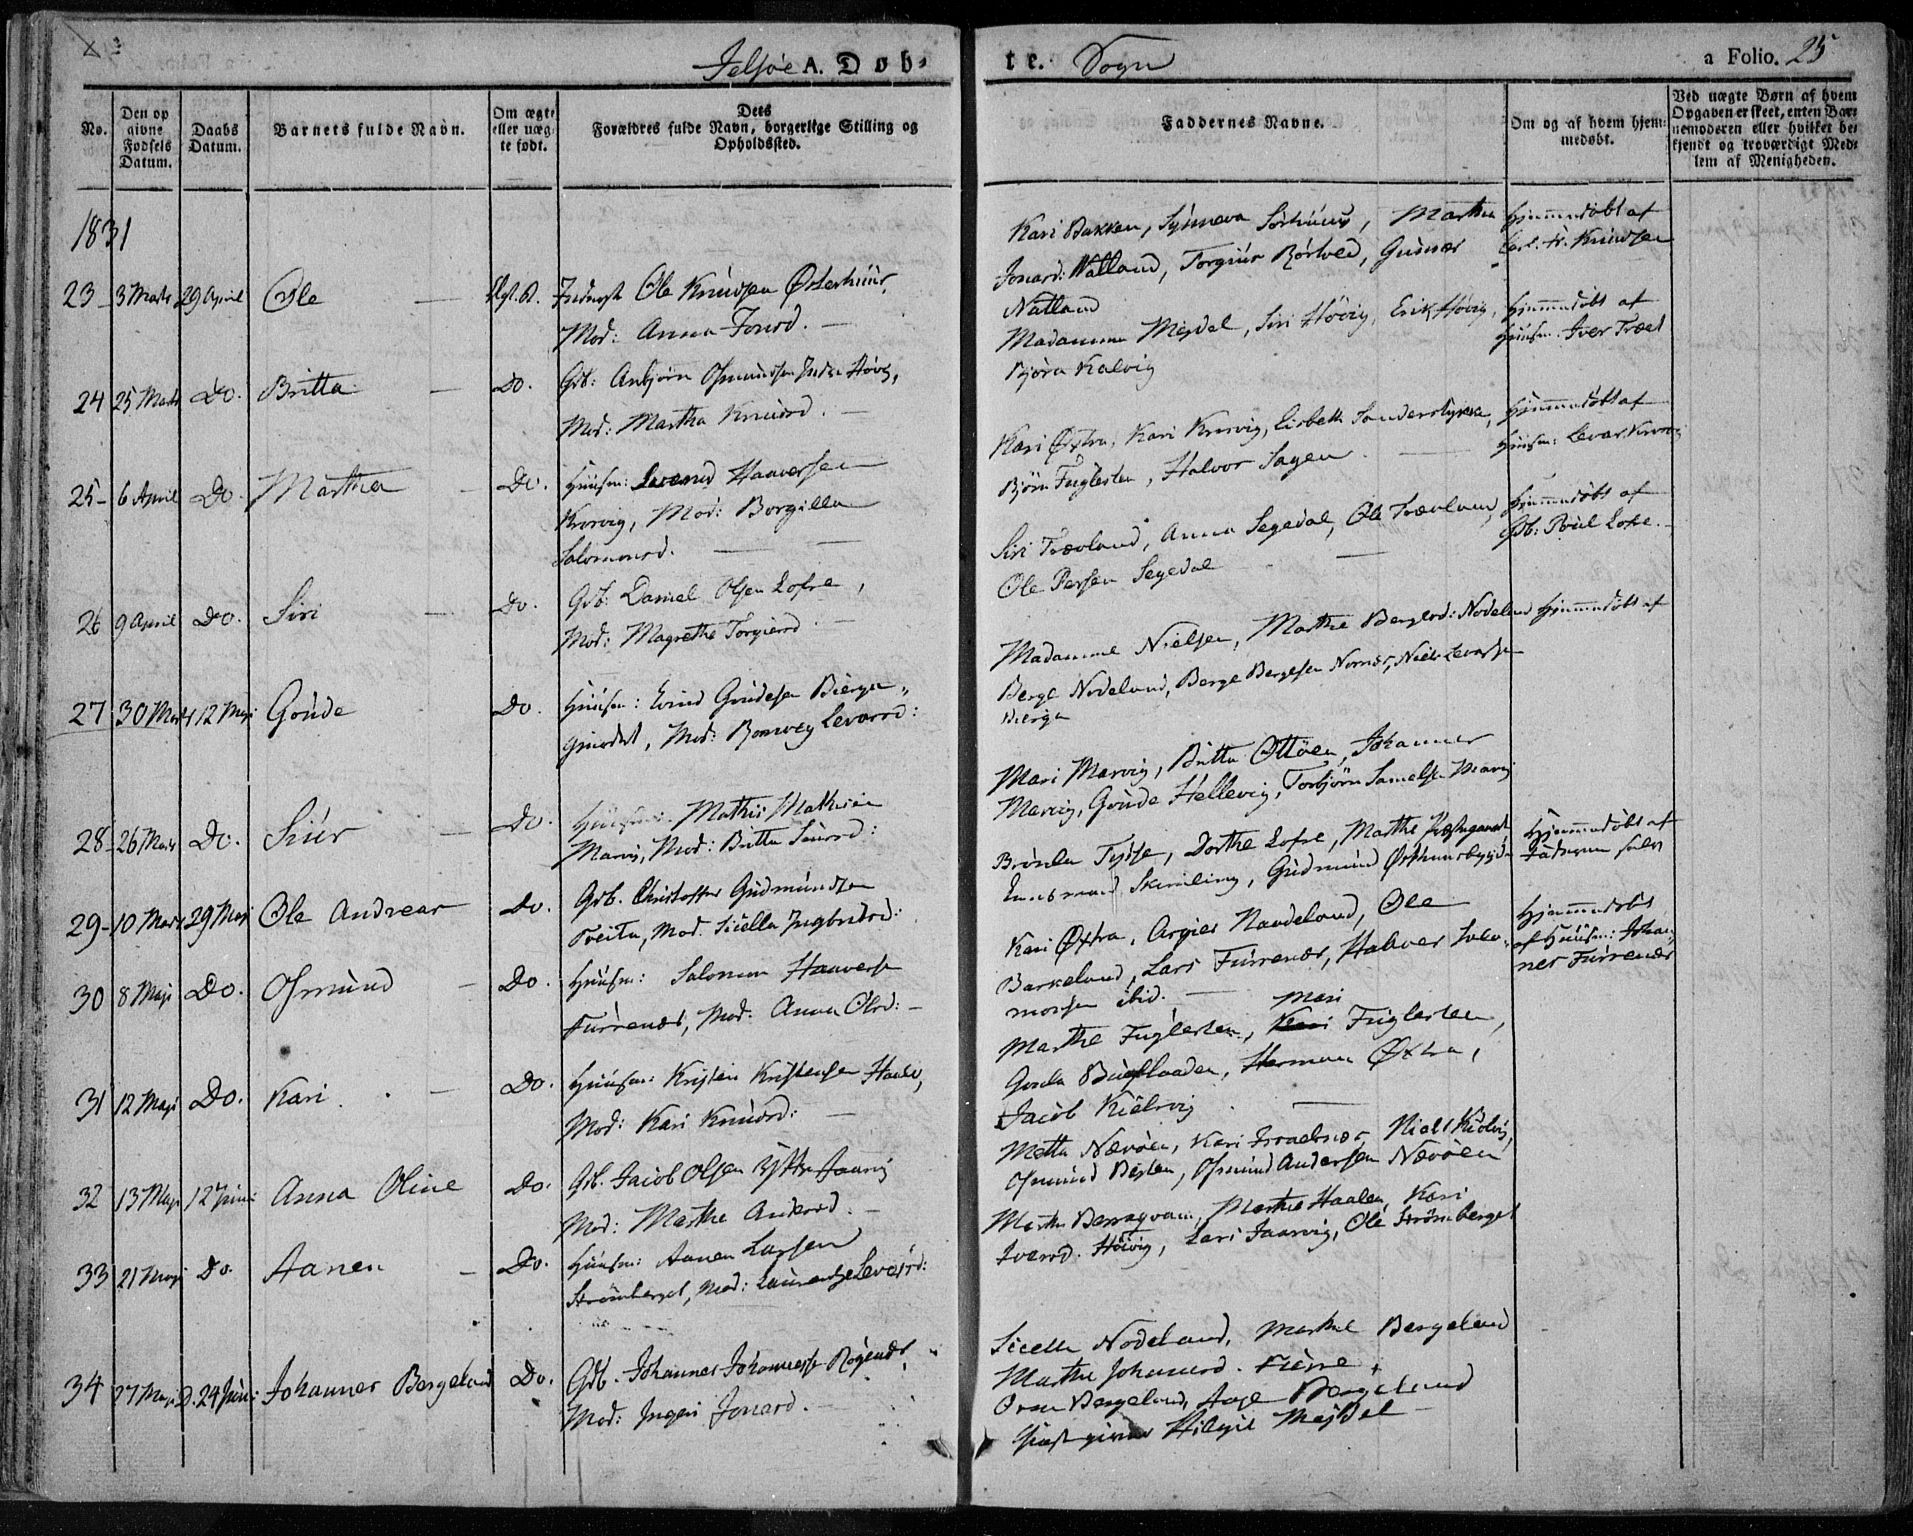 Jelsøe A. Døb-
te. Sogn
a Folio. 25
No.
Den op
givne
Fødsels
Datum.
Daabs
Datum.
Barnets fulde Navn.
Om ægte
eller uæg-
te født.
Dets
Forældres fulde Navn, borgerlige Stilling og
Opholdssted.
Faddernes Navne.
Om og af hvem hjem-
medøbt.
Ved uægte Børn af hvem
Opgaven er skeet, enten Bar-
nemoderen eller hvilket be-
kjendt og troværdigt Med-
lem af Menigheden.
1831
23 3 Marts 29 April Ole Ole Knudsen Østerhuus,
Mod: Anna Jonsd.
Kari Bakken, Synneva Sørhuus, Martha
Jonasd: Natland, Torgiür Rørtved, Gunnar
Natland
Hjemmedøbt af
Knudsen
24 25 Marts Do. Britta Do. Gdb: Anbjørn Osmundsen Indre Høvig,
Mod: Martha Knudsd.
Madamme Mejdel, Siri Høvig, Erik Høvig,
Bjørn Kalvig
Hjemmedøbt af
Huusm. Iver Træet
25 6 April Do. Martha Do. Huusm: Haaversen
Krosvig, Mod: Borgilla
Salomonsd.
Kari Øxtra, Kari Krosvig, Lisbeth Sanderstykke,
Bjørn Fuglesten, Halvor Sagen
Hjemmedøbt af
Huusm: Levar
26 9 April Do. Siri Do. Gdb. Daniel Olsen Lofre,
Mod: Magrethe Torgiersd
Siri Trævland, Anna Segedal, Ole Trævland,
Ole Persen Segedal
Hjemmedøbt af
Gb: Poül Lofre.
27 30 Marts 12 Maji Goüde Do. Huusm: Eivind Goudesen Bierge-
grinodet, Mod: Levarsd:
Madamme Nielsen, Marthe Bergesd: Nodeland
Berge Nodeland, Berge Bergesen Nornes, Niels Levarsen
Bierge
Hjemmedøbt af
28 26 Marts Do. Siür Do. Huusm: Mathis Mathisen
Marvig, Mod: Britta Siursd:
Mari Marvig, Britta Ottøen, Johannes
Marvig, Goüde Hellevig, Torbjørn Samelsen Marvig
29 10 Marts 29 Maji Ole Andreas Do. Gdb. Christoffer Gudmündsen
Tveita, Mod. Sicella Ingbretsd:
Tysse, Dorthe Lofre, Marthe
Skimling, Gudmund
Hjemmedøbt af
Faderen selv
30 8 Maji Do. Osmünd Do. Huusm: Salomon Haaversen
Fürrenes, Mod: Anna Olsd:
Kari Øxtra, Nandeland, Ole
Barkeland, Lars Fürrenes, Halvor Salo-
monsen ibid.
Hjemmedøbt
af Huusm: Johan-
nes Fürrenes
31 12 Maji Do. Kari Do. Huusm: Kristen Kristensen Haalo,
Mod: Kari Knudsd:
Mari
Marthe Fuglesten, Kari Fuglesten,
Herman Øxtra,
Jacob Kiølevig
32 13 Maji 12 Juni Anna Oline Do. Gdb. Jacob Olsen Yttre Jaarvig
Mod: Marthe Andersd.
Metta Nævøen, Kari Israelsnes, Niels Kiølvig,
Osmünd Andersen Nævøen
33 21 Maji Do. Aanen Do. Huusm: Aanen Larsen
Strømberget, Mod: Levarsd:
Marthe Haalen, Kari
Iversd. Høivig, Lars Jaarvig, Ole Strømberget
34 27 Maji D. 24 Juni Johannes Bergeland Do. Gdb. Johannes Johannesen Røgenes,
Mod: Ingeri Jonasd.
Nodeland, Marthe Bergeland
Marthe Johannesd.
Bergeland, Aage Bergeland
Mejdel